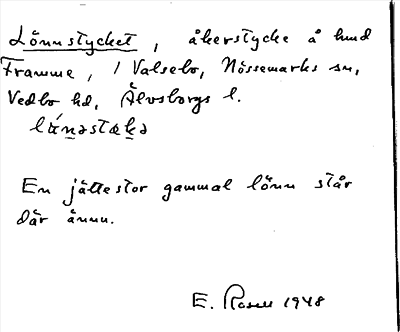 Lönnstycket, åkerstycke å hmd
Framme, 1 Valsebo, Nössemarks sn,
Vedbo hd, Älvsborgs l.
lǿnəstəkə
En jättestor gammal lönn står
där ännu.
E. Rosell 1948